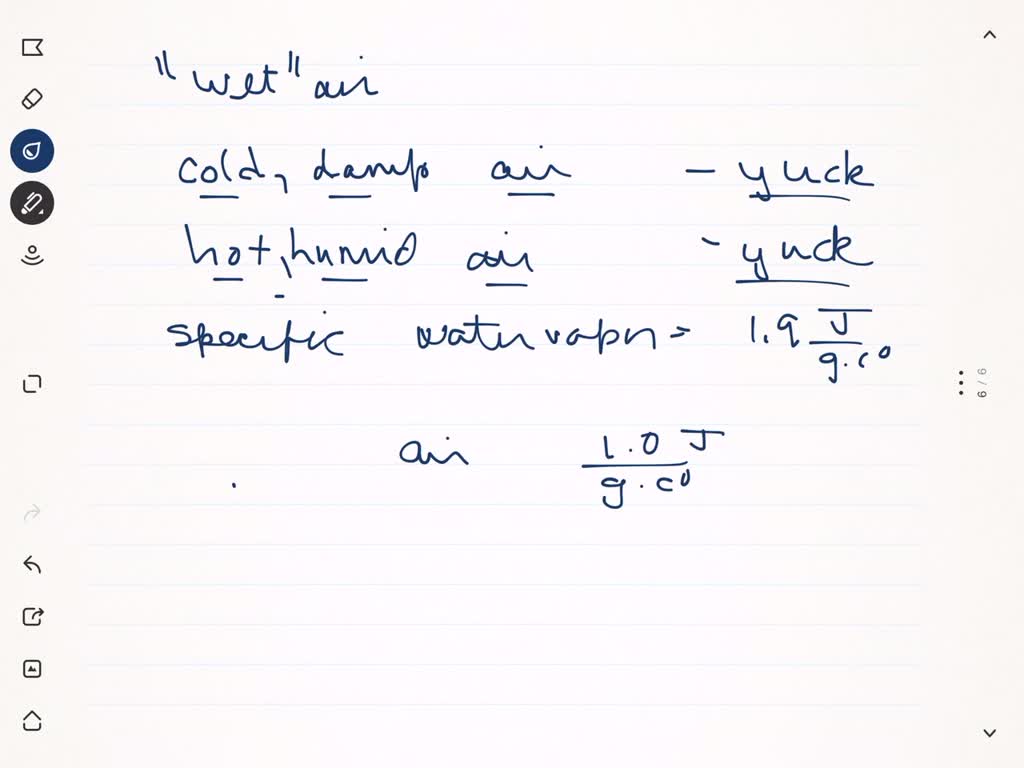 "wet" air
cold, damp air - yuck
hot, humid air - yuck
specific water vapor = 1.9 J / g.c°
air 1.0 J / g.c°
6/6